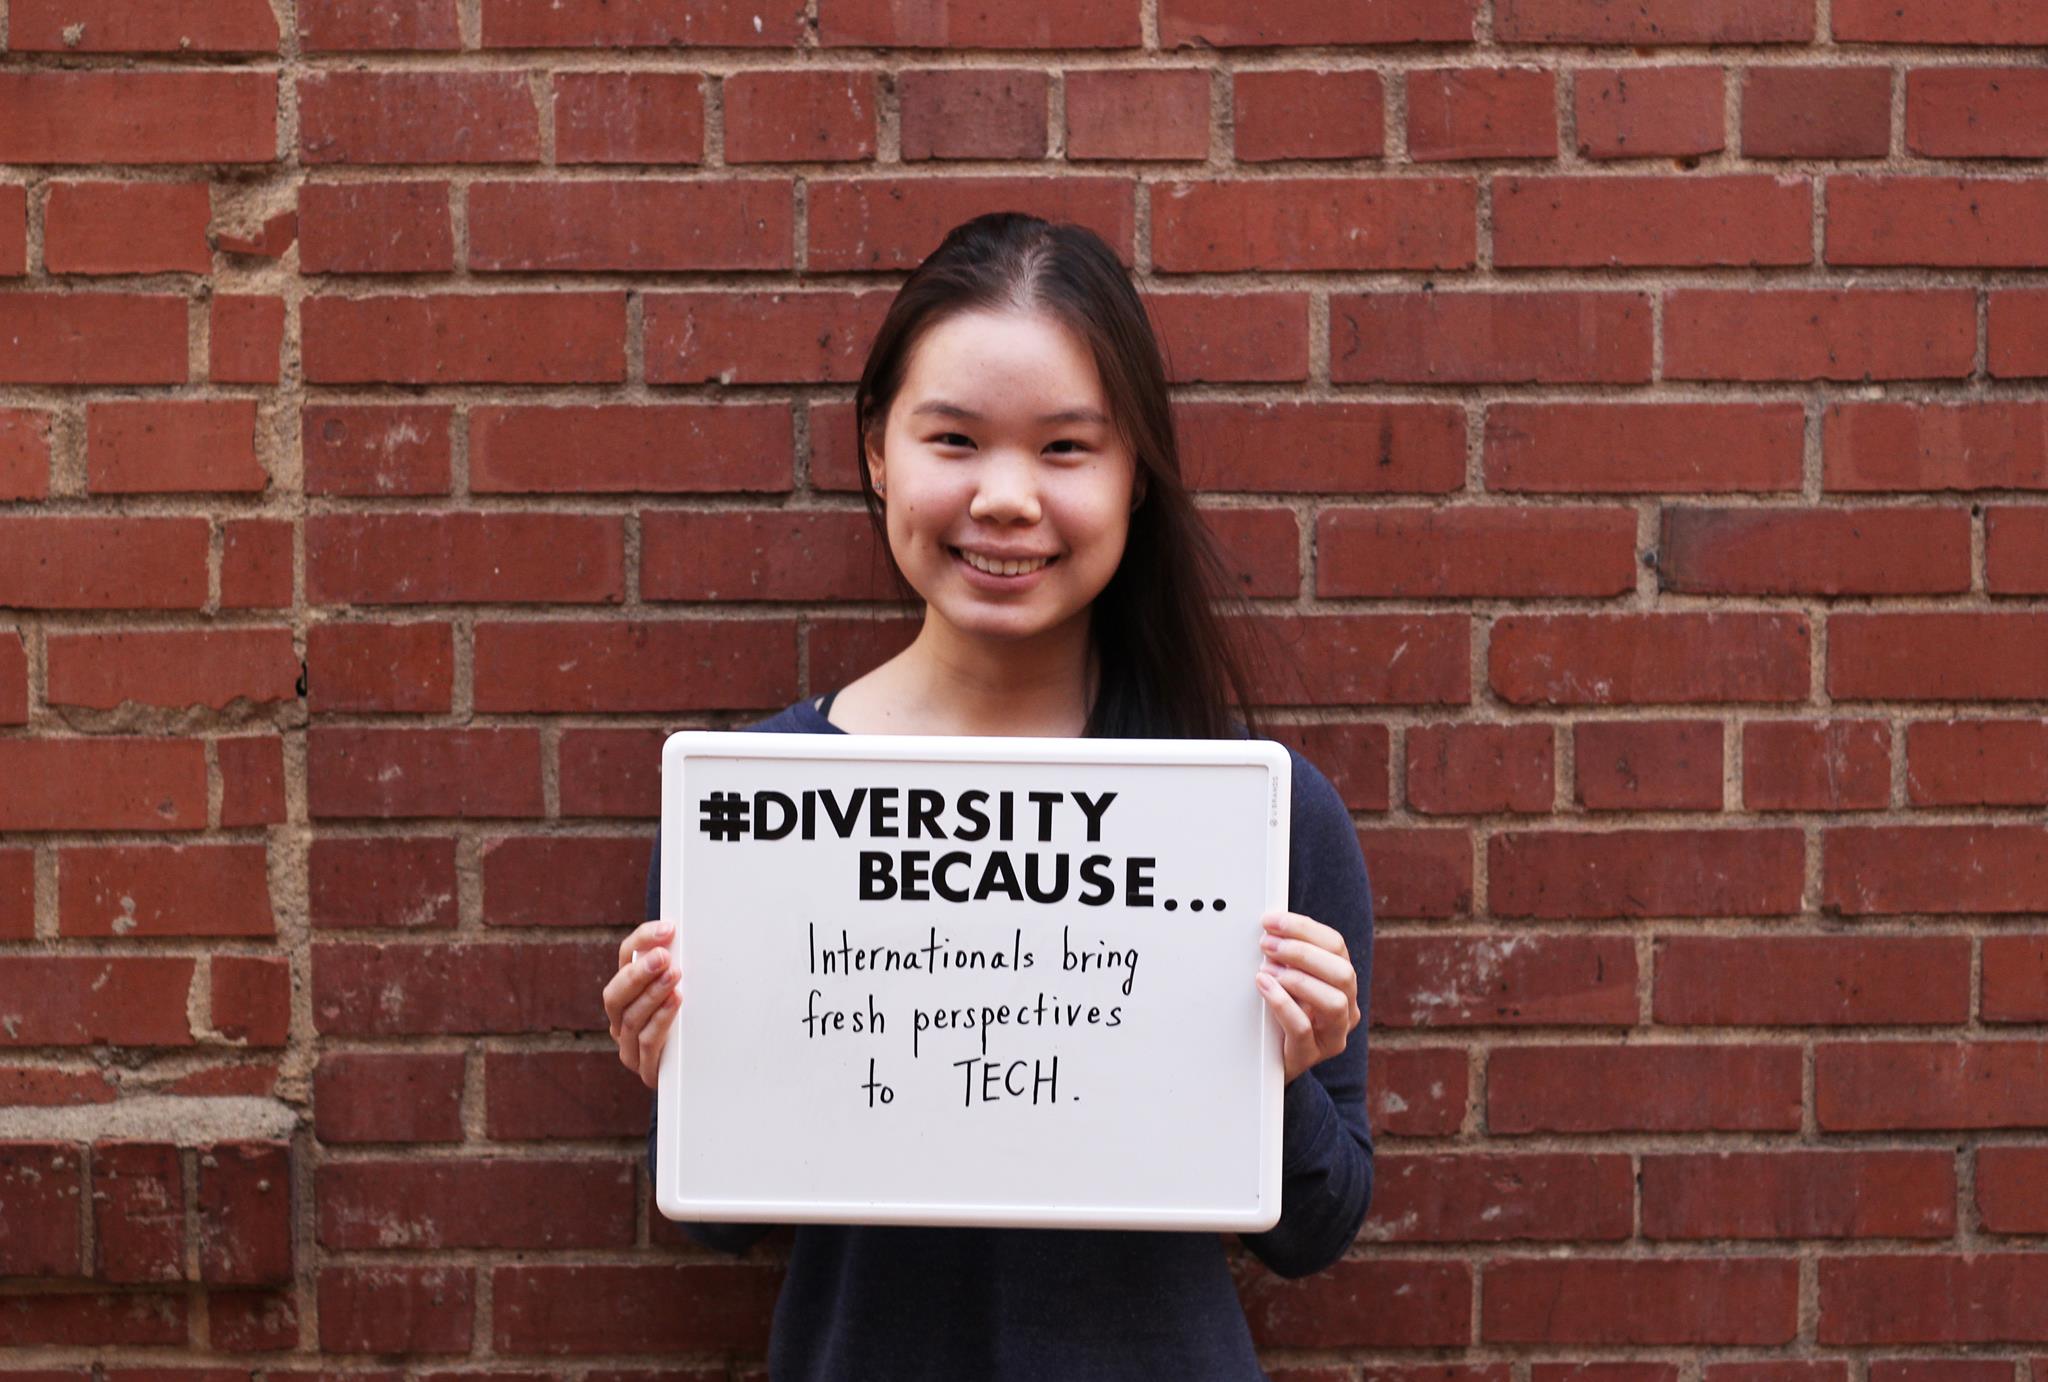 #DIVERSITY
BECAUSE...
Internationals bring
fresh perspectives
to TECH.
U BRANDS